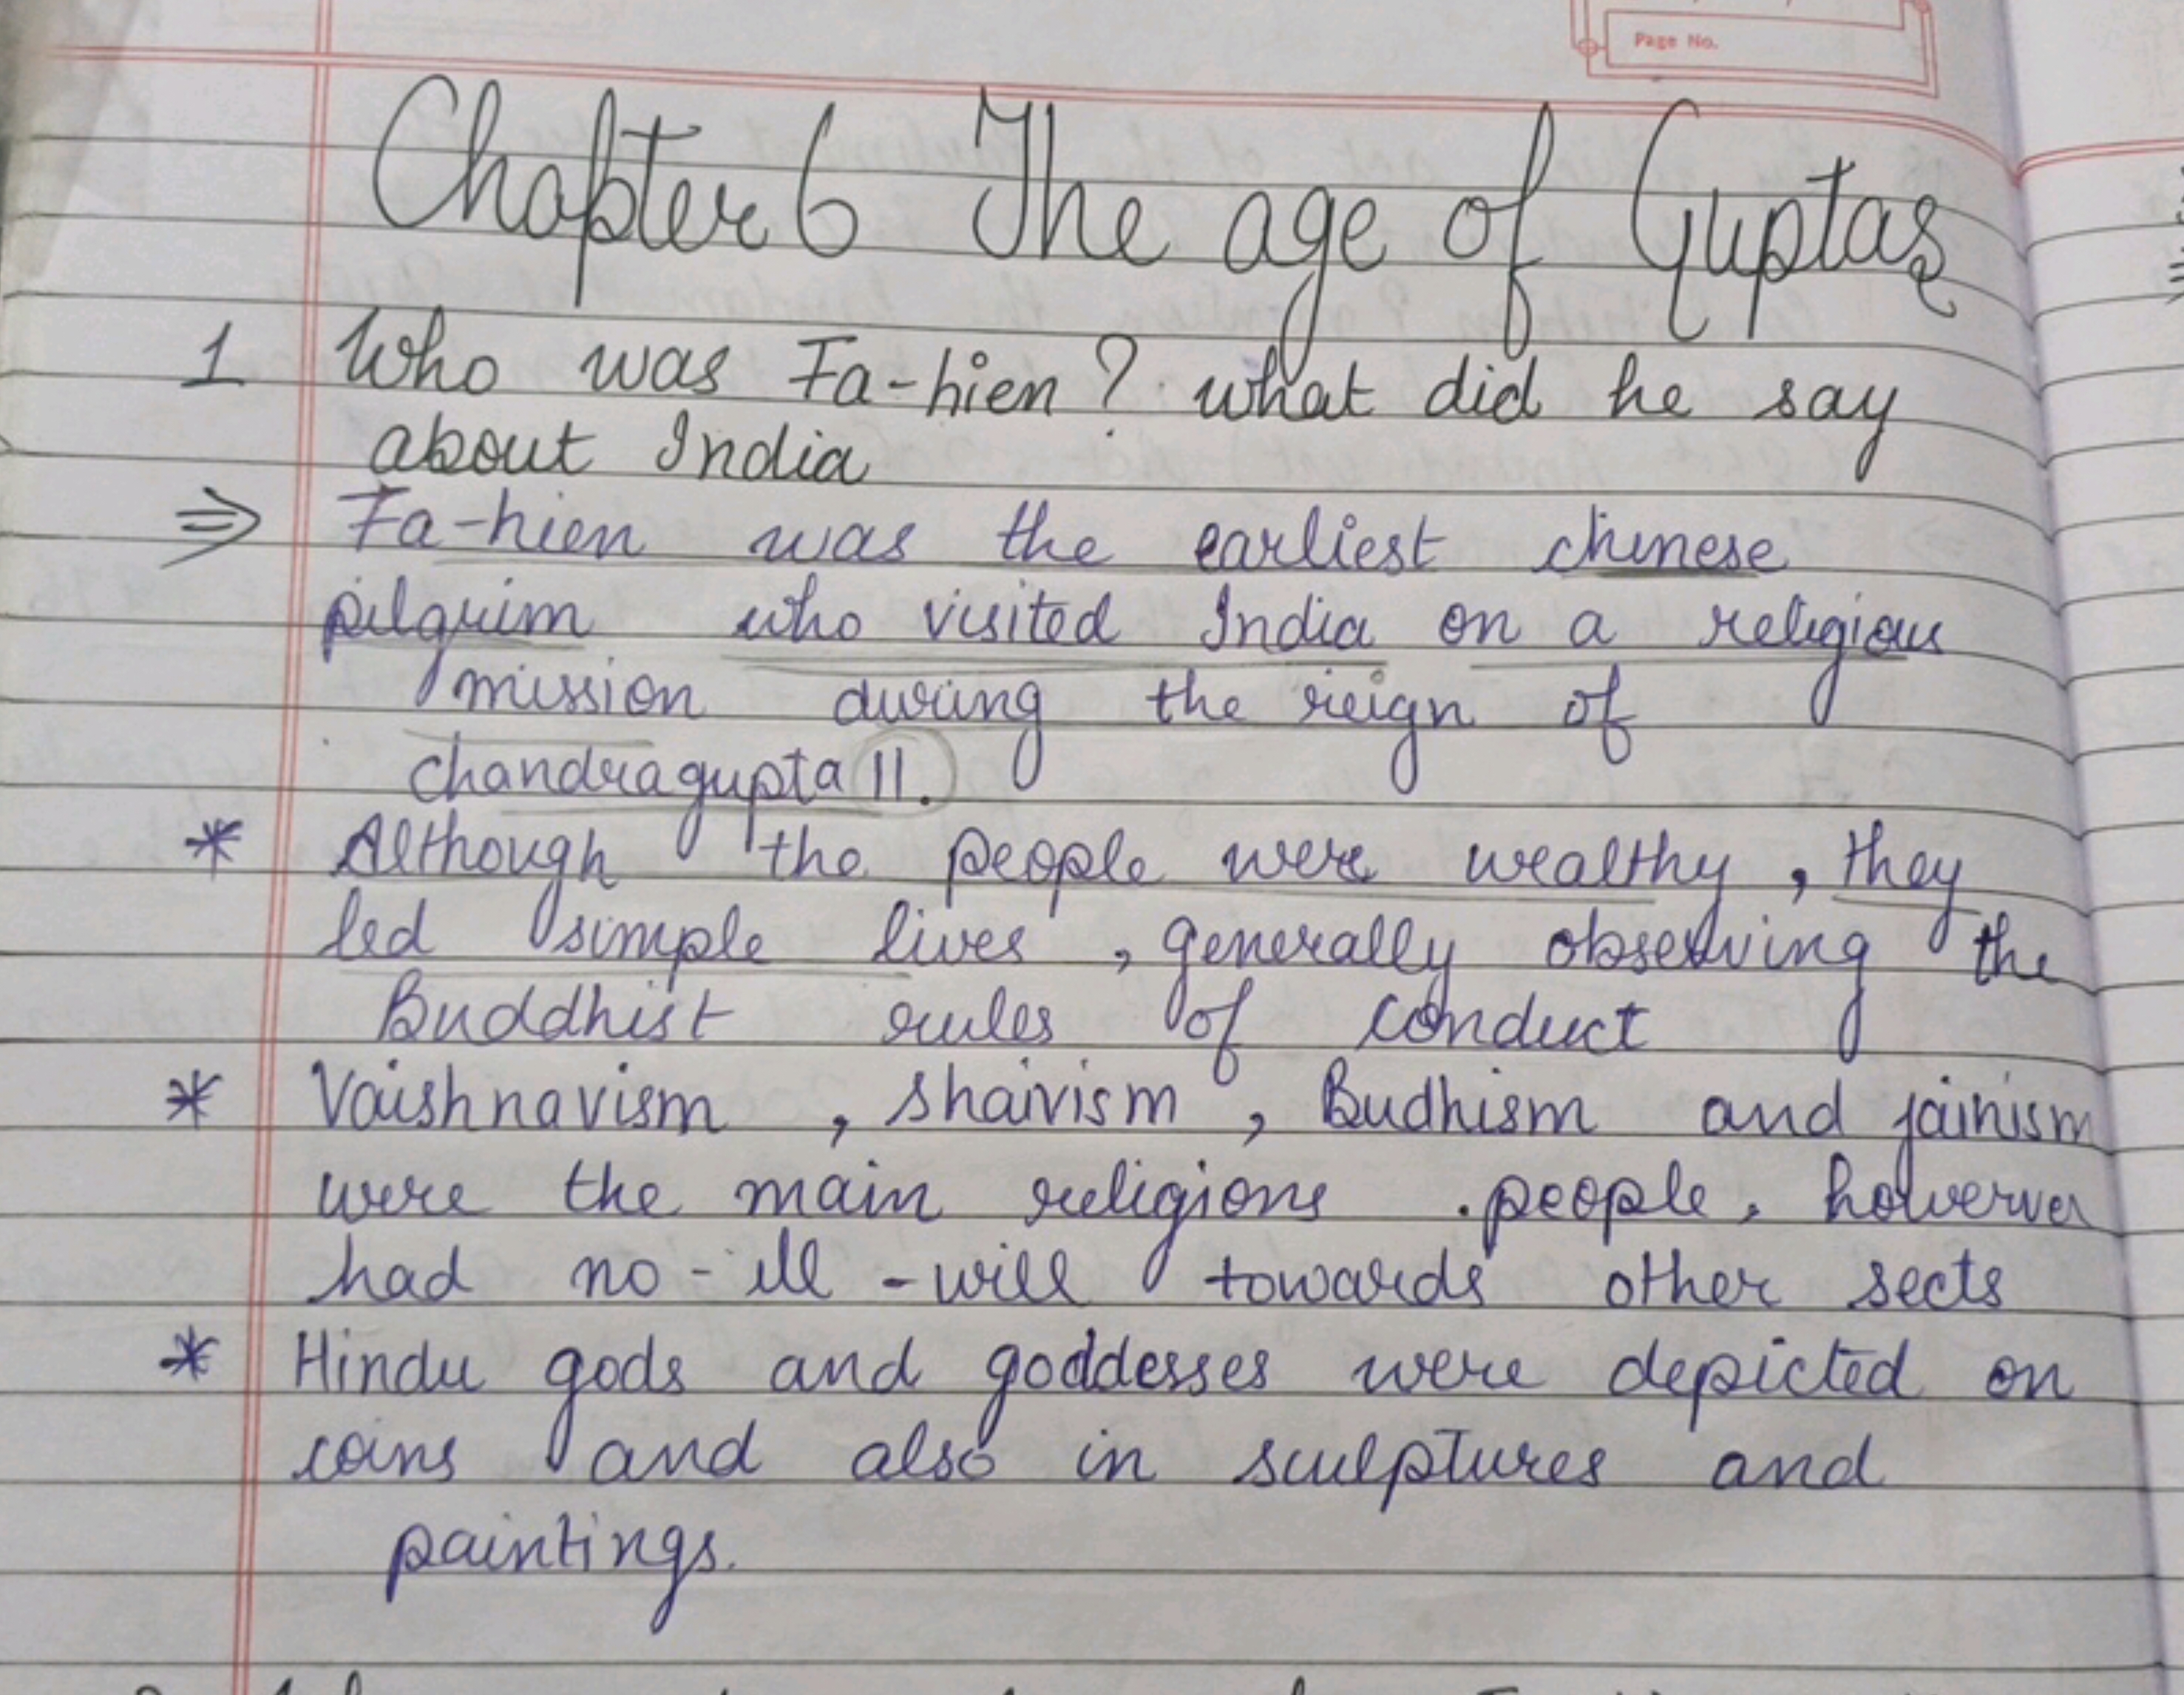 Page No.
Chapter 6 The age of Guptas
1 Who was Fa-hien? what did he say
about India
⇒ Fa-hien was the earliest chinese
pilgrim who visited India on a religious
mission during the reign of
chandragupta II.
* Although the people were wealthy, they
led simple lives, generally observing the
Buddhist rules of conduct
* Vaishnavism, shaivism, Budhism and jainism
were the main religions .people, howerver
had no-ill-will towards other sects
* Hindu gods and goddesses were depicted on
coins and also in sculptures and
paintings.